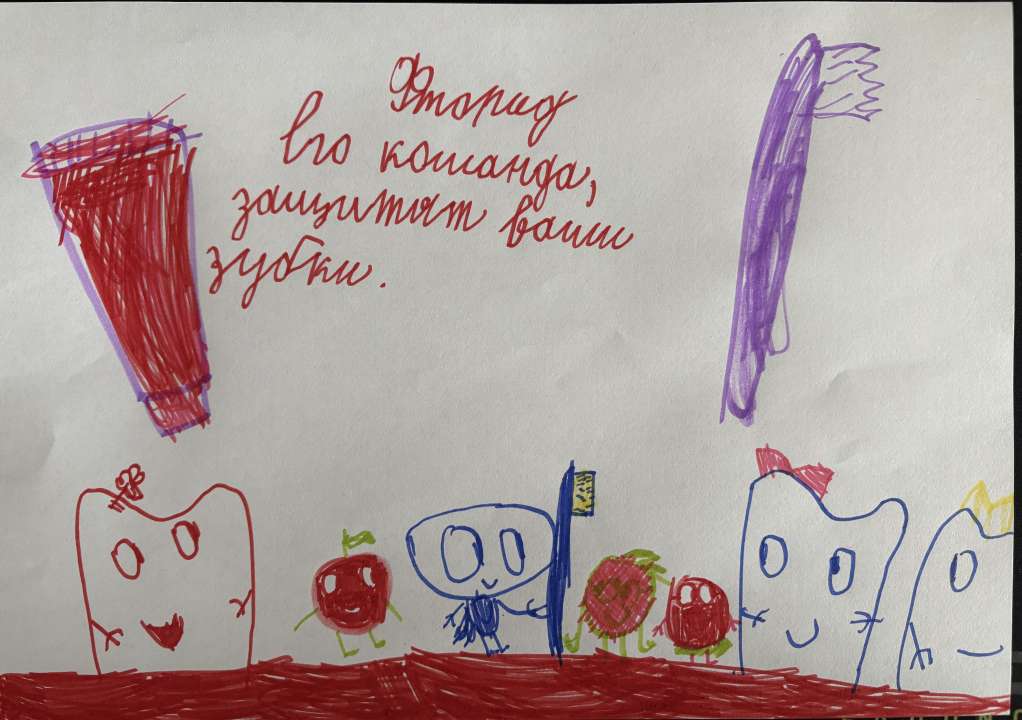 Фторид
его команда,
защитят ваши
зубки.